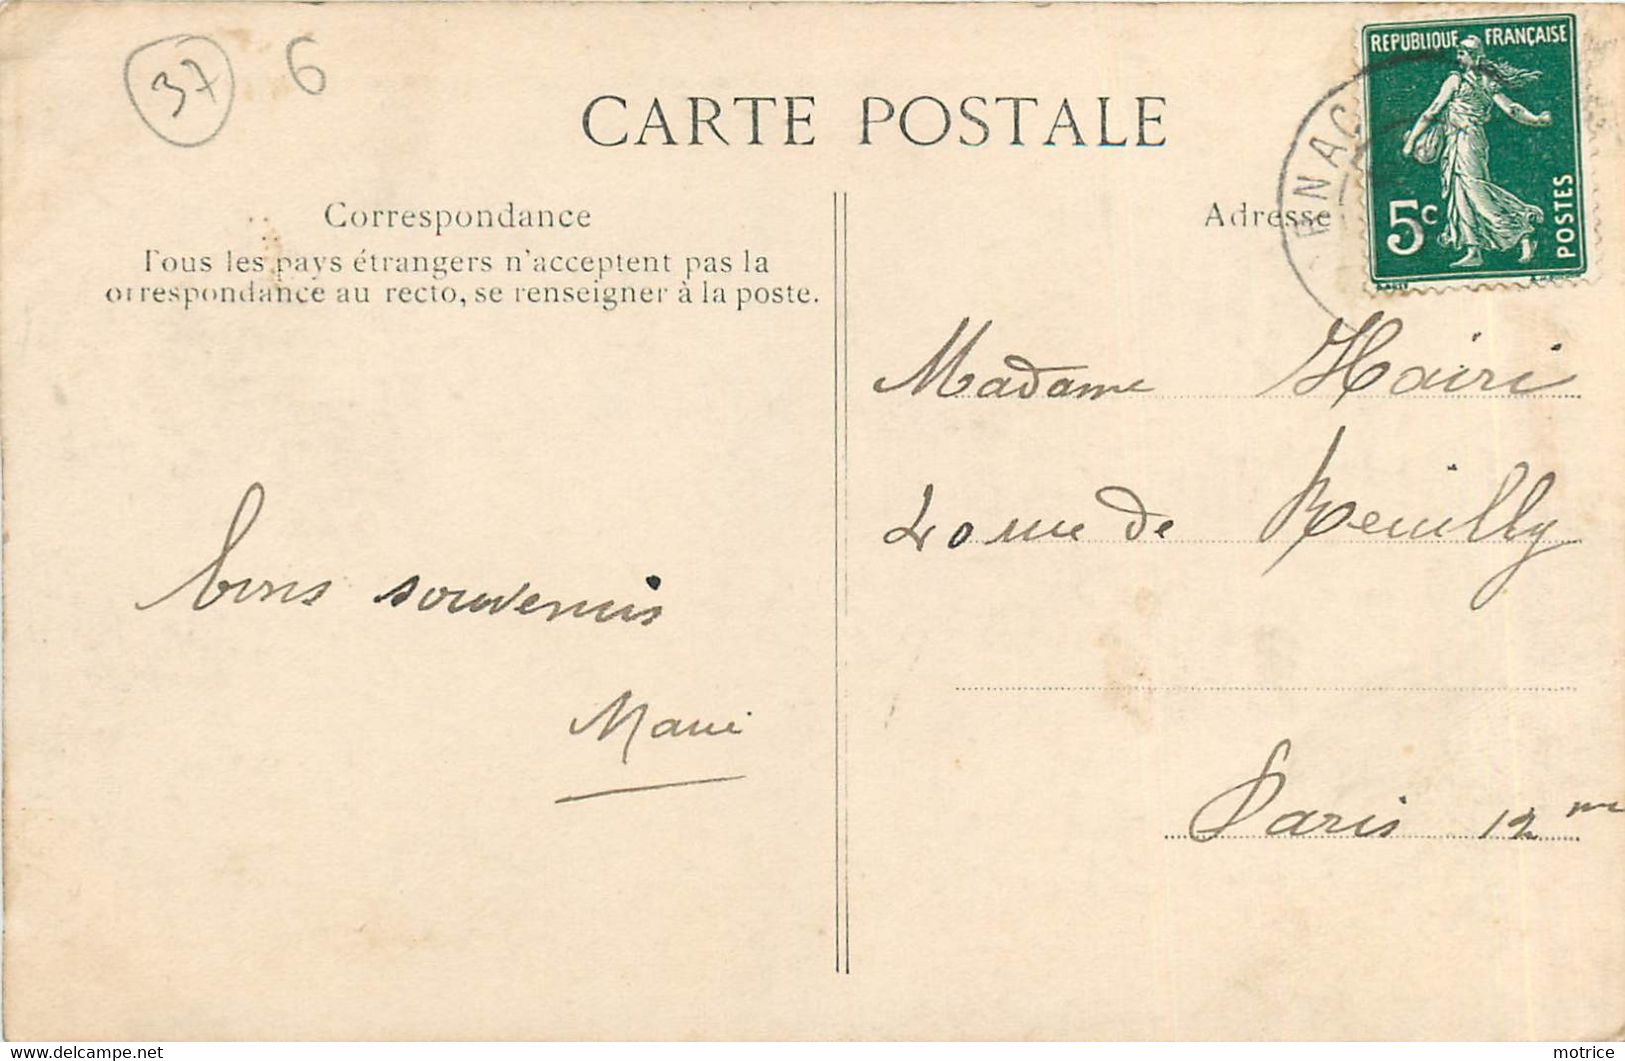 37 6
CARTE POSTALE
Correspondance
Tous les pays étrangers n'acceptent pas la
orrespondance au recto, se renseigner à la poste.
bons souvenirs
Marie
Adresse
REPUBLIQUE FRANÇAISE
5c
POSTES
Madame Hairi
40 rue de Reuilly
Paris 12me
motrice